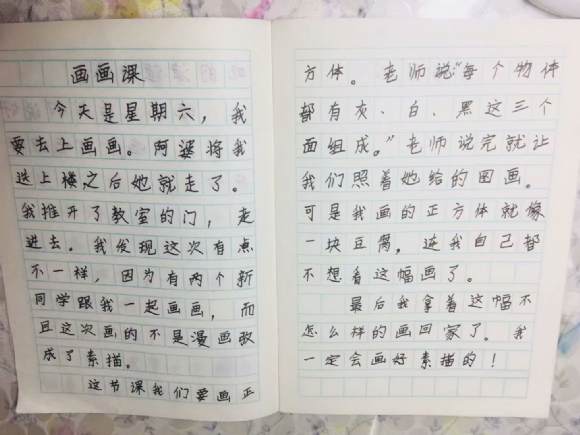 画画课
今天是星期六，我
要去上画画。阿婆将我
送上楼之后她就走了。
我推开了教室的门，走
进去。我发现这次有点
不一样，因为有两个新
同学跟我一起画画，而
且这次画的不是漫画改
成了素描。
这节课我们要画正
方体。老师说“每个物体
都有灰、白、黑这三个
面组成。”老师说完就让
我们照着她给的图画。
可是我画的正方体就像
一块豆腐，连我自己都
不想看这幅画了。
最后我拿着这幅不
怎么样的画回家了。我
一定会画好素描的！